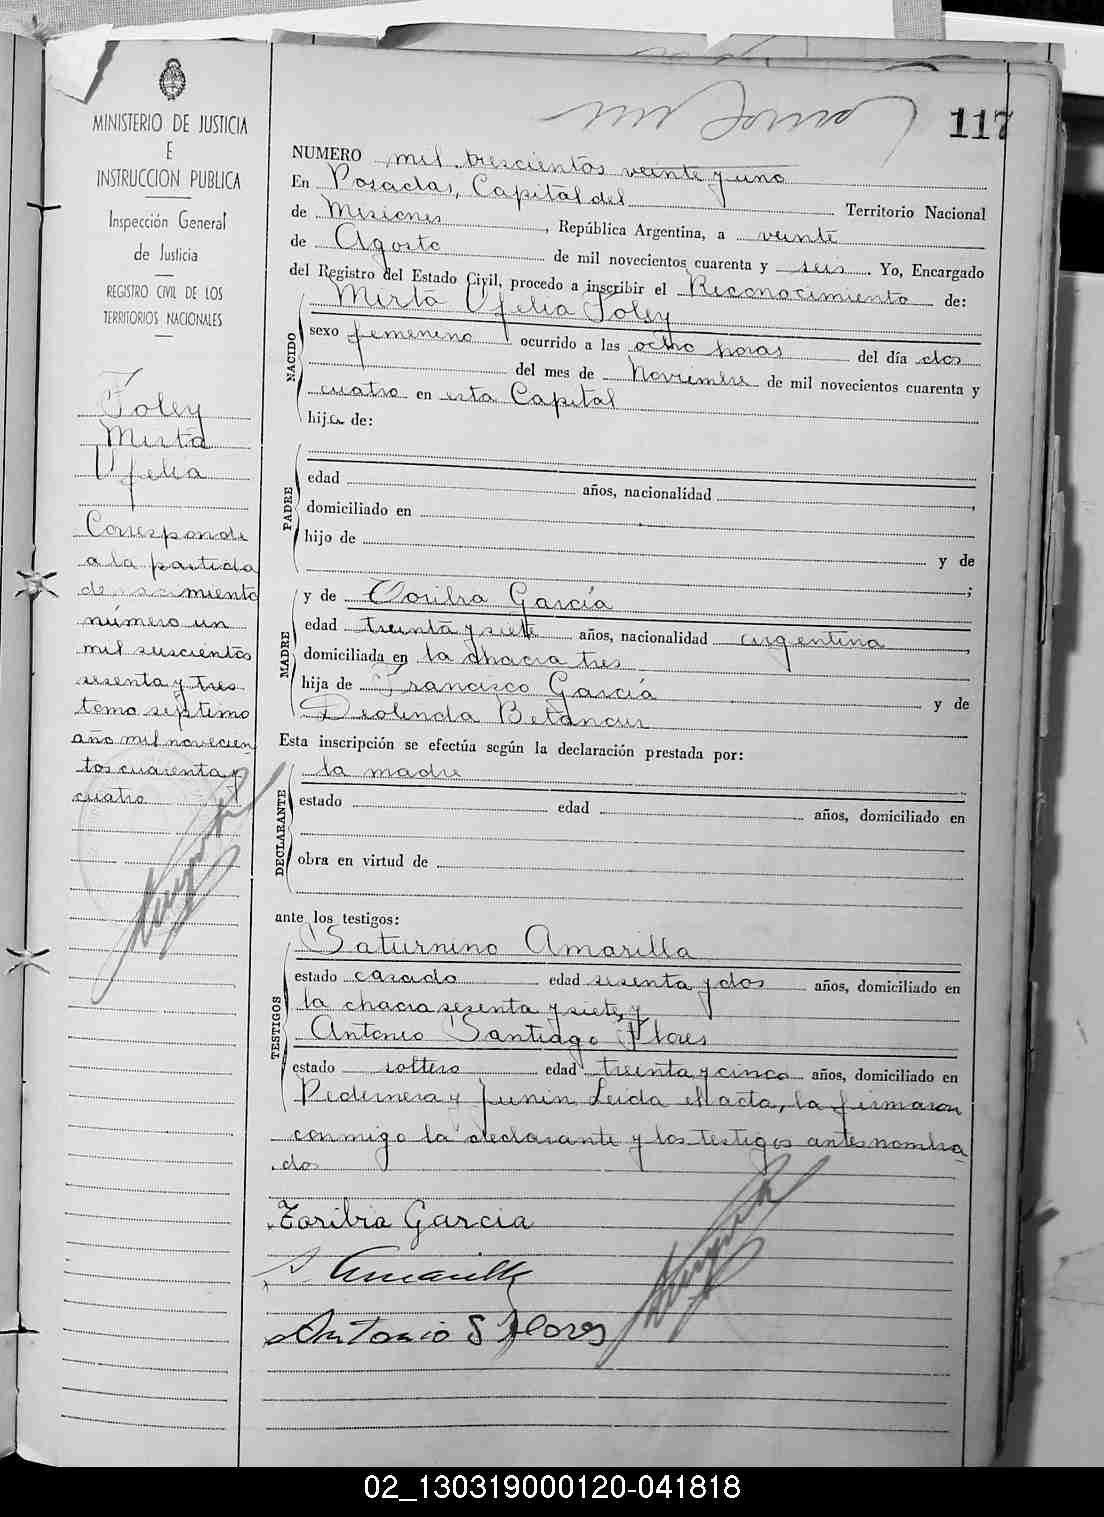 117
MINISTERIO DE JUSTICIA
E
INSTRUCCION PUBLICA
Inspección General
de Justicia
REGISTRO CIVIL DE LOS
TERRITORIOS NACIONALES
Foley
Mirta
Ofelia
Corresponde
a la partida
de nacimiento
número un
mil seiscientos
sesenta y tres
tomo séptimo
año mil novecien
tos cuarenta y
cuatro
NUMERO mil trescientos veinte y uno
En Posadas, Capital del Territorio Nacional
de Misiones, República Argentina, a veinte
de Agosto de mil novecientos cuarenta y seis. Yo, Encargado
del Registro del Estado Civil, procedo a inscribir el Reconocimiento de:
NACIDO
Mirta Ofelia Foley
sexo femenino ocurrido a las ocho horas del día dos
del mes de Noviembre de mil novecientos cuarenta y
cuatro en esta Capital
hija de:
PADRE
edad años, nacionalidad
domiciliado en
hijo de y de
;
MADRE
y de Toribia García
edad treinta y siete años, nacionalidad argentina
domiciliada en la chacra tres
hija de Francisco García y de
Deolinda Betancur
Esta inscripción se efectúa según la declaración prestada por:
DECLARANTE
la madre
estado edad años, domiciliado en
obra en virtud de
ante los testigos:
TESTIGOS
Saturnino Amarilla
estado casado edad sesenta y dos años, domiciliado en
la chacra sesenta y siete, y
Antonio Santiago Flores
estado soltero edad treinta y cinco años, domiciliado en
Pedernera y Junin. Leida el acta, la firmaron
conmigo la declarante y los testigos antes nombra
dos
Toribia Garcia
S Amarilla
Antonio S Flores
02_130319000120-041818